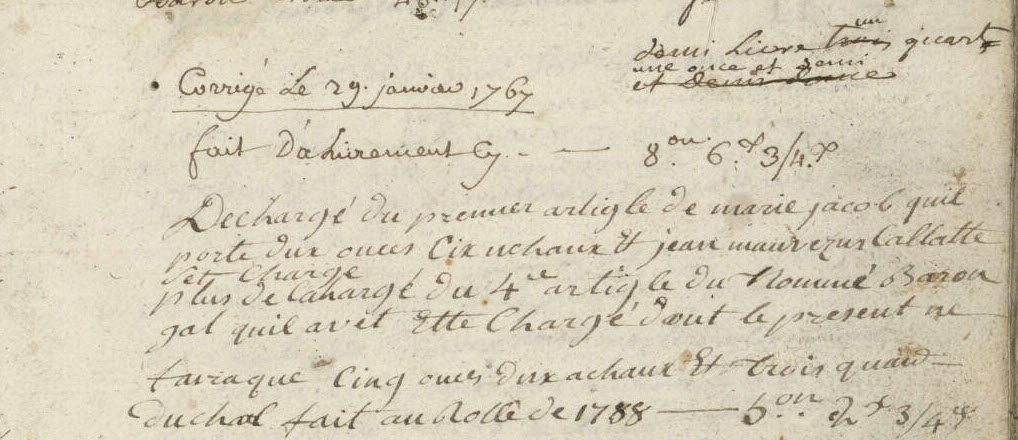 demi Livre trois un quart
une once et demi
et demi once
Corrigé Le 29. janvier 1767
fait D'alivrement Cy - — 8.on 6.x 3/4.x
Dechargé du premier artigle de marie jacob quil
porte dux onces Cix uchaux Et jean mauvezun Callatte
set Charge
plus de Cahargé du 4e artigle du Nommé Baron
gal quil avet Ette Chargé dont le present ne
tarraque Cinq onces dux achaux Et trois quard
duchal fait au Rolle de 1788 — 5.on 2.x 3/4